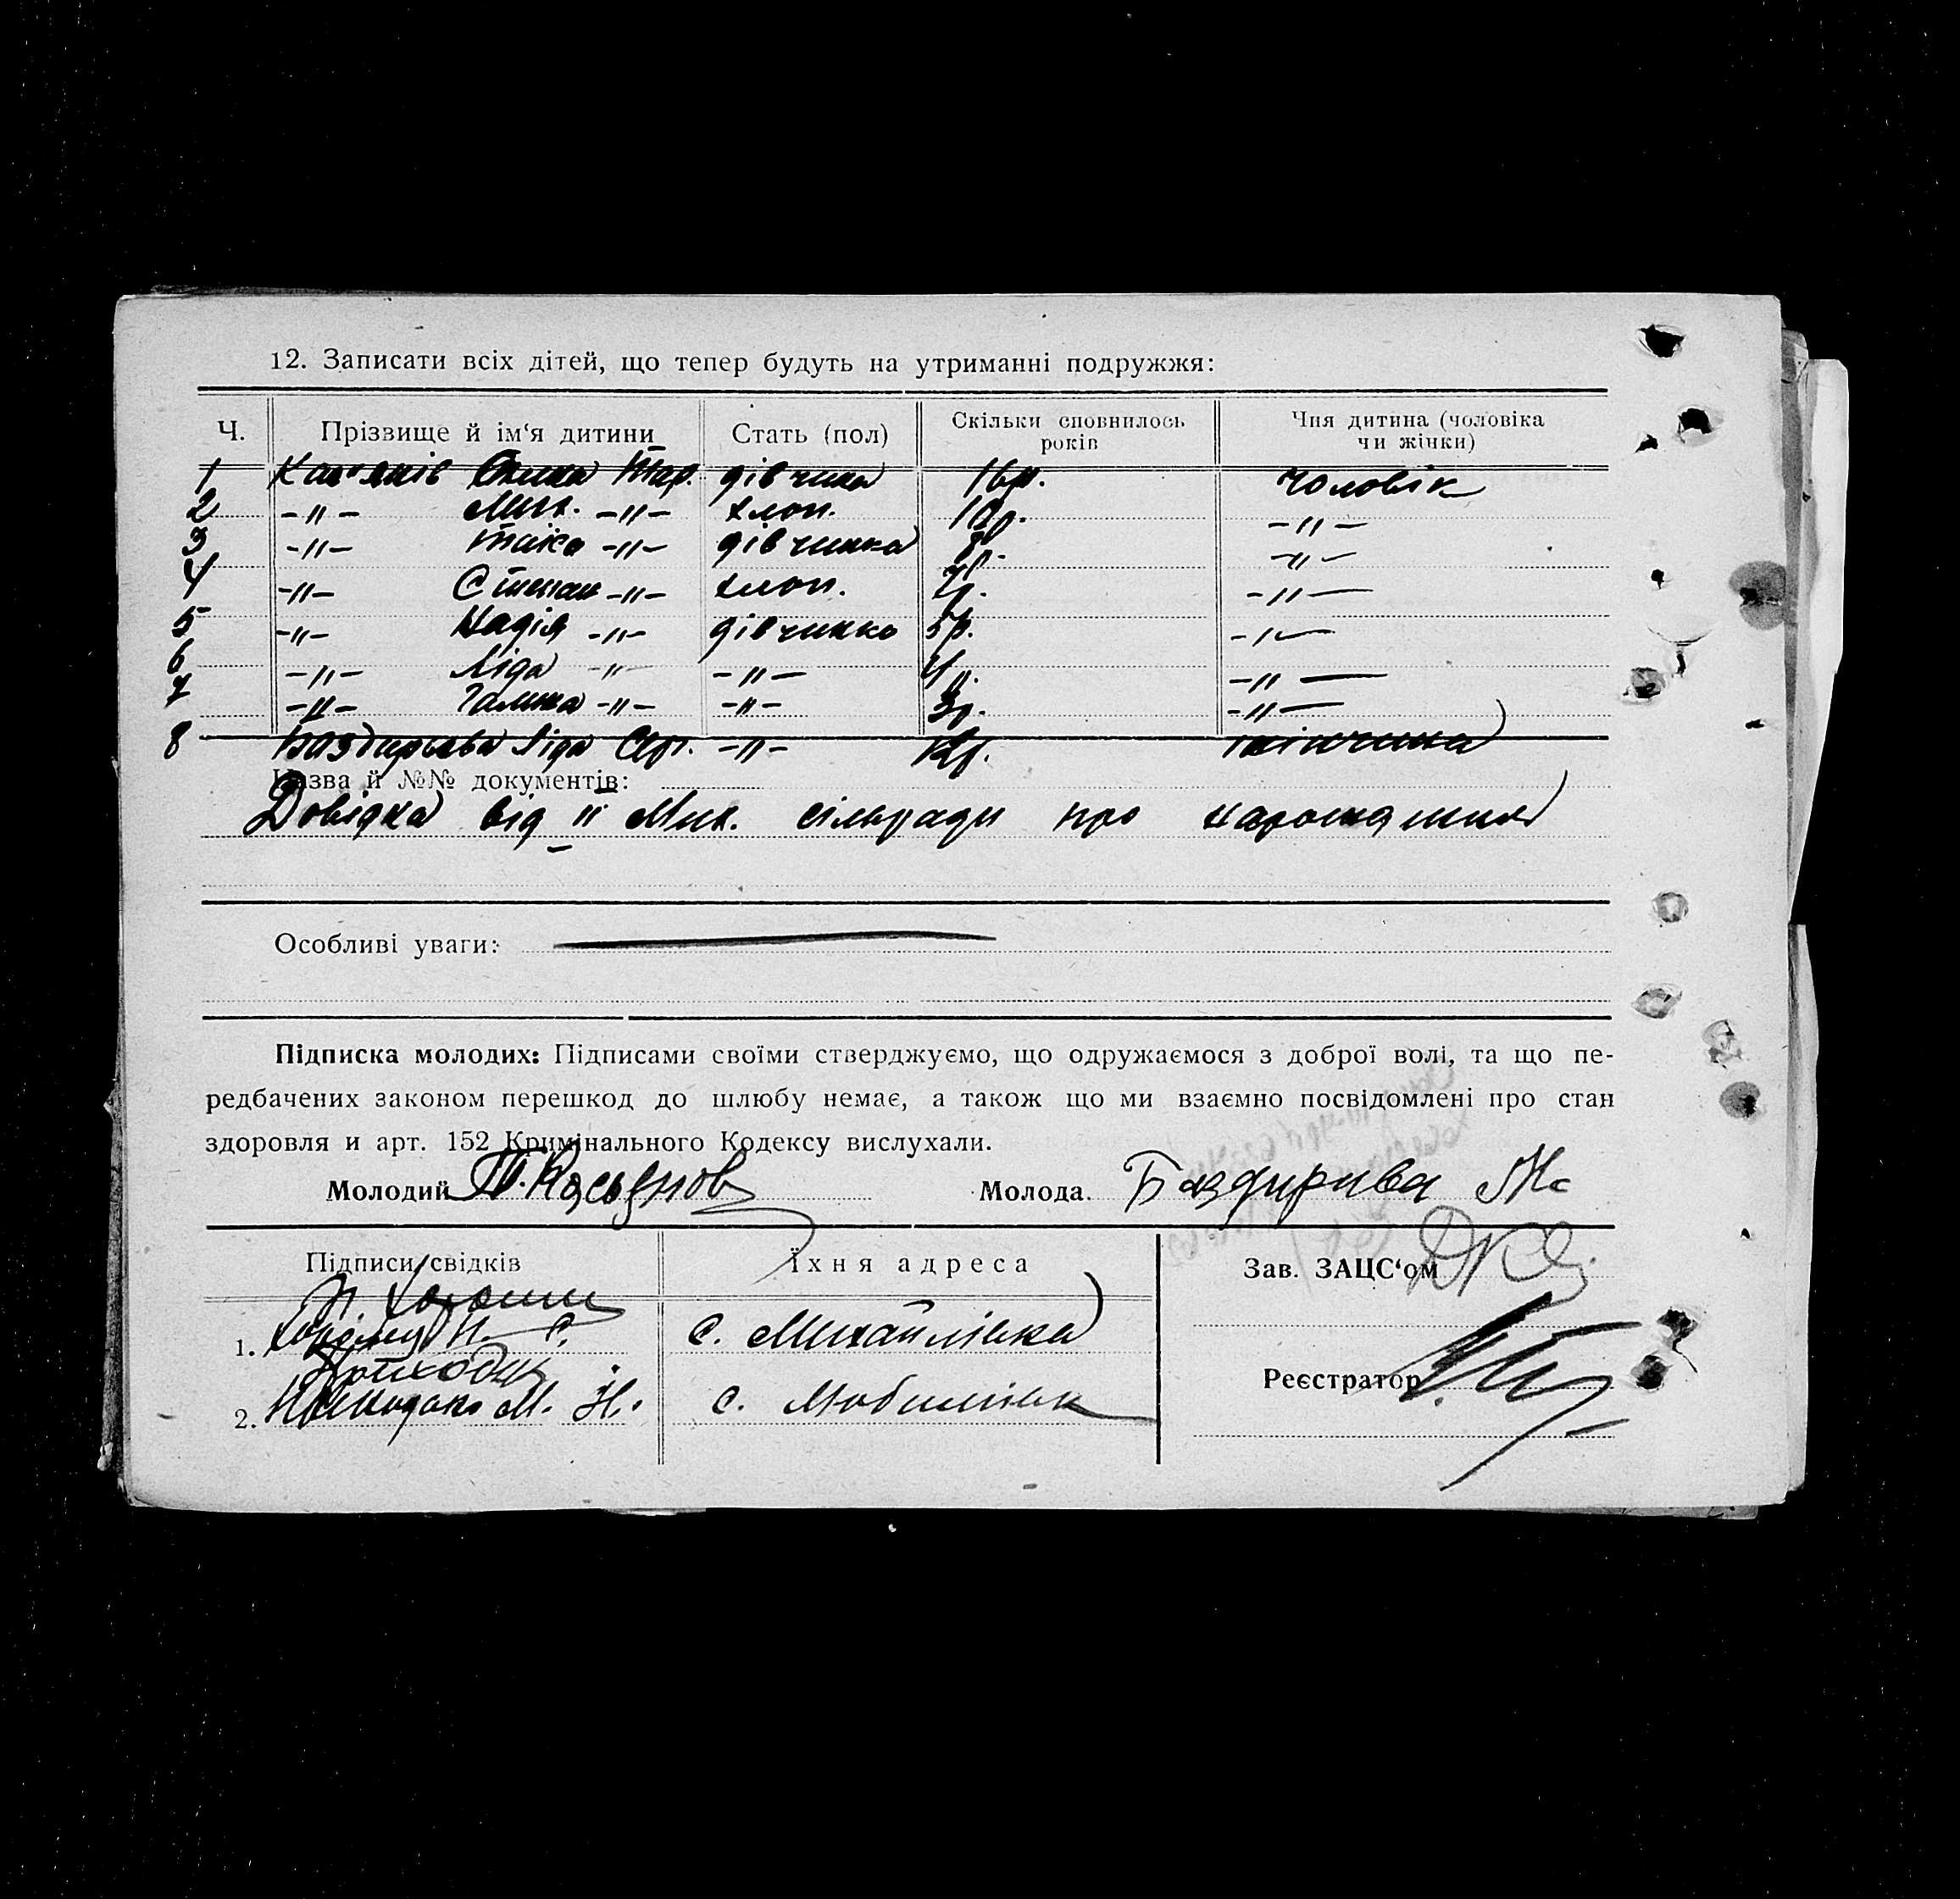 12. Записати всіх дітей, що тепер будуть на утриманні подружжя:
Ч. Прізвище й ім‘я дитини Стать (пол) Скільки сповнилось років Чия дитина (чоловіка чи жінки)
1 дівчина 16р. чоловік
2 -〃- Мих. -〃- хлоп. -〃-
3 -〃- -〃- дівчинка 8р. -〃-
4 -〃- Степан -〃- хлоп. -〃-
5 -〃- Надія -〃- дівчинка 5р. -〃-
6 -〃- Ліда -〃- -〃- -〃-
7 -〃- Галина -〃- -〃- 3р. -〃-
8 Баздирева Ліда -〃-
Назва й №№ документів:
Довідка від II Мих. сільради про народження
Особливі уваги:
Підписка молодих: Підписами своїми стверджуємо, що одружаємося з доброї волі, та що пе-
редбачених законом перешкод до шлюбу немає, а також що ми взаємно посвідомлені про стан
здоровля и арт. 152 Кримінального Кодексу вислухали.
Молодий Т. Касьянов Молода Баздирива
Підписи свідків Їхня адреса Зав. ЗАЦС‘ом
1. с. Михайлівка
Реєстратор
2. М. Н. с.